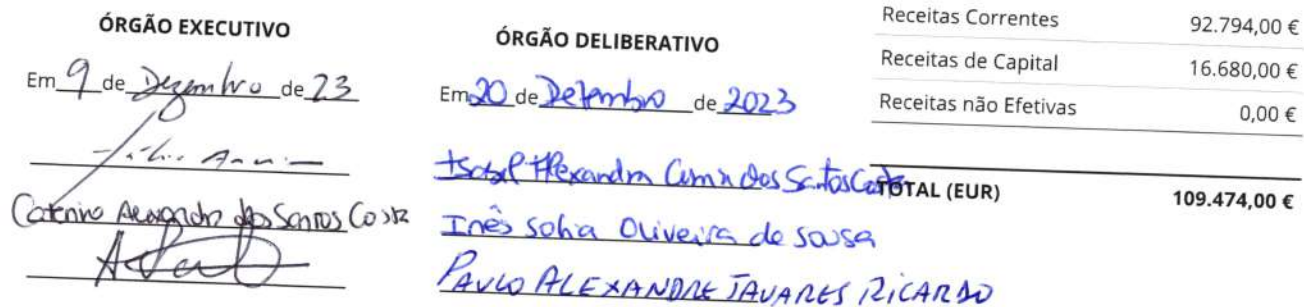 ÓRGÃO EXECUTIVO
Em 9 de Dezembro de 23
Catarina Alexandra dos Santos Costa
ÓRGÃO DELIBERATIVO
Em 20 de Dezembro de 2023
Isabel Alexandra Cunha dos Santos Costa
Inês Sofia Oliveira de Sousa
PAULO ALEXANDRE TAVARES RICARDO
Receitas Correntes 92.794,00 €
Receitas de Capital 16.680,00 €
Receitas não Efetivas 0,00 €
TOTAL (EUR) 109.474,00 €